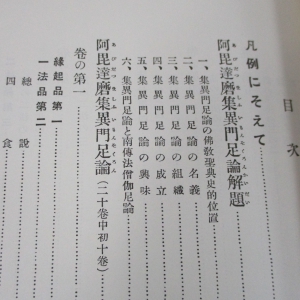 目次
凡例にそえて
阿毘達磨集異門足論解題
一、集異門足論の佛敎聖典史的位置
二、集異門足論の名義
三、集異門足論の組織
四、集異門足論の成立
五、集異門足論の興味
六、集異門足論と南傳法僧伽尼論
阿毘達磨集異門足論(二十卷中初十卷)
卷の第一
緣起品第一
一法品第二
總說
四食